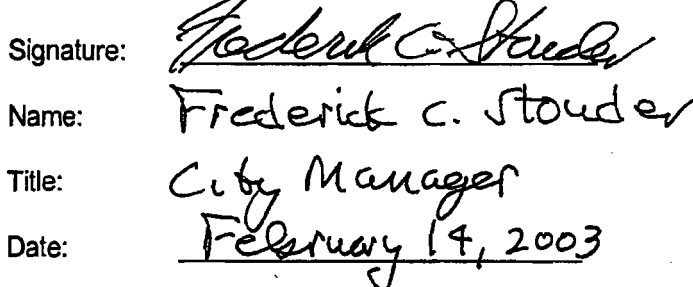 Signature: Frederick C. Stouder
Name: Frederick C. Stouder
Title: City Manager
Date: February 14, 2003